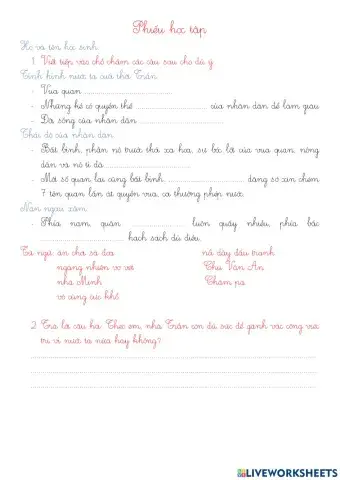 Phiếu học tập
Họ và tên học sinh:
1. Viết tiếp vào chỗ chấm các câu sau cho đủ ý.
Tình hình nước ta cuối thời Trần.
- Vua quan ........................................
- Những kẻ có quyền thế ........................ của nhân dân để làm giàu
- Đời sống của nhân dân ........................
Thái độ của nhân dân.
- Bất bình, phẫn nộ trước thói xa hoa, sự bóc lột của vua quan, nông
dân và nô tì đã ........................
- Một số quan lại cũng bất bình ........................ dâng sớ xin chém
7 tên quan lấn át quyền vua, coi thường phép nước.
Nạn ngoại xâm
- Phía nam, quân ................ luôn quấy nhiễu, phía bắc
........................ hạch sách đủ điều.
Từ ngữ: ăn chơi sa đọa
nổi dậy đấu tranh
ngang nhiên vơ vét
Chu Văn An
nhà Minh
Chăm-pa
vô cùng cực khổ
2. Trả lời câu hỏi: Theo em, nhà Trần còn đủ sức để gánh vác công việc
trị vì nước ta nữa hay không?
........................................................................
........................................................................
........................................................................
LIVEWORKSHEETS